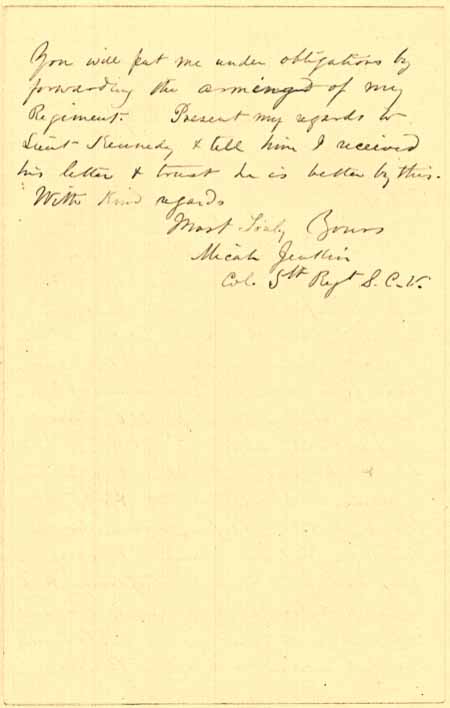 You will put me under obligations by
forwarding the arming of my
Regiment. Present my regards to
Lieut Kennedy & tell him I received
his letter & trust he is better by this.
With Kind regards
Most Truly Yours
Micah Jenkins
Col. 5th Regt S.C.V.